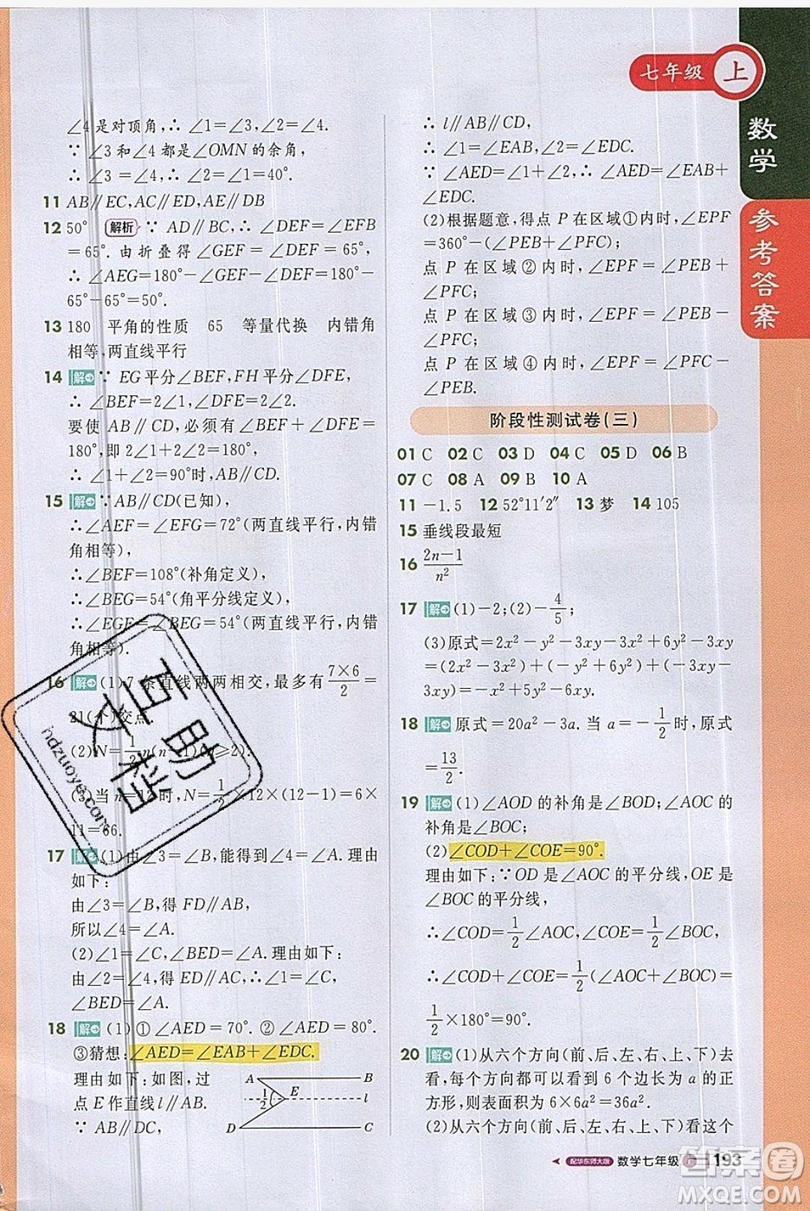 七年级 上
数学
参考答案
∠4 是对顶角,∴ ∠1=∠3,∠2=∠4.
∵ ∠3 和∠4 都是∠OMN 的余角,
∴ ∠3=∠4.∴ ∠2=∠1=40°.
11 AB∥EC,AC∥DE,AE∥DB
12 50° 解析 ∵ AD∥BC,∴ ∠DEF=∠EFB
=65°. 由折叠得∠GEF=∠DEF=65°,
∴ ∠AEG=180°-∠GEF-∠DEF=180°-
65°-65°=50°.
13 180 平角的性质 65 等量代换 内错角
相等,两直线平行
14 解 ∵ EG 平分∠BEF,FH 平分∠DFE,
∴ ∠BEF=2∠1,∠DFE=2∠2.
要使 AB∥CD,必须有∠BEF+∠DFE=
180°,即 2∠1+2∠2=180°.
∴ ∠1+∠2=90°时,AB∥CD.
15 解 ∵AB∥CD(已知),
∴∠AEF=∠EFG=72°(两直线平行,内错
角相等),
∴∠BEF=108°(补角定义),
∴∠BEG=54°(角平分线定义),
∴∠EGF=∠BEG=54°(两直线平行,内错
角相等).
16 解 (1)7 条直线两两相交,最多有7×6/2=
21(个)交点.
(2)N=1/2n(n-1)(n≥2).
(3)当 n=12 时,N=1/2×12×(12-1)=6×
11=66.
17 解 (1)由∠3=∠B,能得到∠4=∠A.理由
如下:
由∠3=∠B,得 FD∥AB,
所以∠4=∠A.
(2)∠1=∠C,∠BED=∠A.理由如下:
由∠2+∠4=180°,得 ED∥AC,
∴ ∠1=∠C,∠BED=∠A.
18 解 (1) ① ∠AED = 70°. ② ∠AED = 80°.
③猜想:∠AED=∠EAB+∠EDC.
理由如下:如图,过
点 E 作直线 l∥AB.
∵ AB∥DC,
A B
1
2 E l
D C
∴ l∥AB∥CD,
∴ ∠1=∠EAB,∠2=∠EDC.
∵ ∠AED=∠1+∠2,∴ ∠AED=∠EAB+
∠EDC.
(2)根据题意,得点 P 在区域①内时,∠EPF
=360°-(∠PEB+∠PFC);
点 P 在区域②内时,∠EPF=∠PEB+
∠PFC;
点 P 在区域③内时,∠EPF=∠PEB-
∠PFC;
点 P 在区域④内时,∠EPF=∠PFC-
∠PEB.
阶段性测试卷(三)
01 C 02 C 03 D 04 C 05 D 06 B
07 C 08 A 09 B 10 A
11 -1.5 12 52°11′2″ 13 梦 14 105
15 垂线段最短
16 2n-1/n²
17 解 (1)-2;(2)-4/5;
(3)原式=2x²-y²-3xy-3x²+6y²-3xy
=(2x²-3x²)+(-y²+6y²)+(-3xy-
3xy)=-x²+5y²-6xy.
18 解 原式=20a²-3a. 当 a=-1/2时,原式
=13/2.
19 解 (1)∠AOD 的补角是∠BOD;∠AOC
的补角是∠BOC;
(2)∠COD+∠COE=90°.
理由如下:∵OD 是∠AOC 的平分线,OE 是
∠BOC 的平分线,
∴∠COD=1/2∠AOC,∠COE=1/2∠BOC,
∴∠COD+∠COE=1/2(∠AOC+∠BOC)=
1/2×180°=90°.
20 解 (1)从六个方向(前、后、左、右、上、下)去
看,每个方向都能看到 6 个边长为 a 的正
方形,则表面积为 6×6a²=36a².
(2)从六个方向(前、后、左、右、上、下)去看,
配华东师大版 数学七年级 上 193
互助文档
hdzuoye.com
答案圈
MXQE.COM